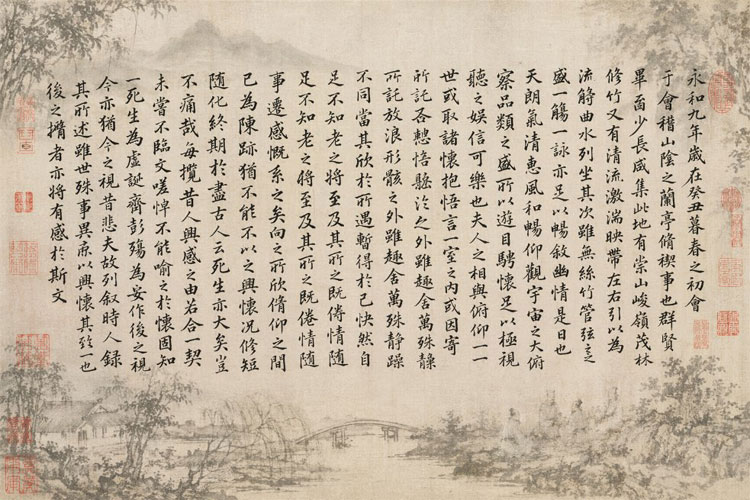 永和九年歲在癸丑暮春之初會
于會稽山陰之蘭亭脩禊事也群賢
畢至少長咸集此地有崇山峻嶺茂林
修竹又有清流激湍映帶左右引以為
流觴曲水列坐其次雖無絲竹管弦之
盛一觴一詠亦足以暢敘幽情是日也
天朗氣清惠風和暢仰觀宇宙之大俯
察品類之盛所以遊目騁懷足以極視
聽之娛信可樂也夫人之相與俯仰一一
世或取諸懷抱悟言一室之內或因寄
所託各憩悟懸之外雖趣舍萬殊
所託放浪形骸之外雖趣舍萬殊静躁
不同當其欣於所遇暫得於己快然自
足不知老之將至及其所之既倦情隨
足不知老之將至及其所之既倦情隨
事遷感慨系之矣向之所欣脩仰之間
已為陳跡猶不能不以之興懷況修短
隨化終期於盡古人云死生亦大矣豈
不痛哉每攬昔人興感之由若合一契
未嘗不臨文嗟悼不能喻之於懷固知
一死生為虛誕齊彭殤為妄作後之視
今亦猶今之視昔悲夫故列叙時人錄
其所述雖世殊事異以興懷其致一也
後之攬者亦將有感於斯文